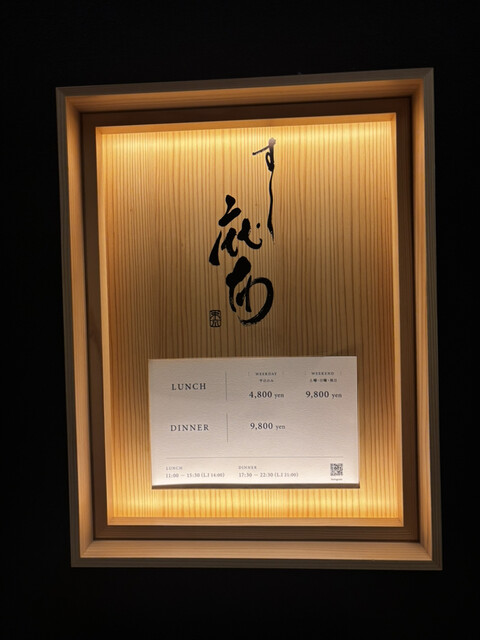 すし
麻布
東京
WEEKDAY
WEEKEND
平日のみ
土曜・日曜・祝日
LUNCH
4,800 yen
9,800 yen
DINNER
9,800 yen
LUNCH
DINNER
11:00 – 15:30 (L.I 14:00)
17:30 – 22:30 (L.I 21:00)
Instagram